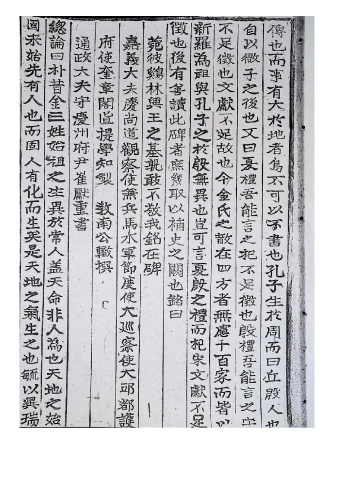 傳也而事有大於地者焉不可以不書也孔子生於周而曰丘殷人也
自以微子之後也又曰夏禮吾能言之杞不足徵也殷禮吾能言之宋
不足徵也文獻不足故也今金氏之散在四方者無慮千百家而皆以
新羅爲祖與孔子之於殷無異也豈可言夏殷之禮而杞宋文獻不足
徵也後有會讀此碑者庶幾取以補史之闕也銘曰
菀彼鷄林興王之基孰敢不敬我銘在碑
嘉義大夫慶尙道觀察使兼兵馬水軍節度使大巡察使大邱都護
府使奎章閣直提學知製 敎南公轍撰
通政大夫守慶州府尹崔獻重書
總論曰朴昔金三姓始祖之生異於常人盖天命非人爲也天地之始
固未始先有人也而固人有化而生矣是天地之氣生之也毓以異瑞